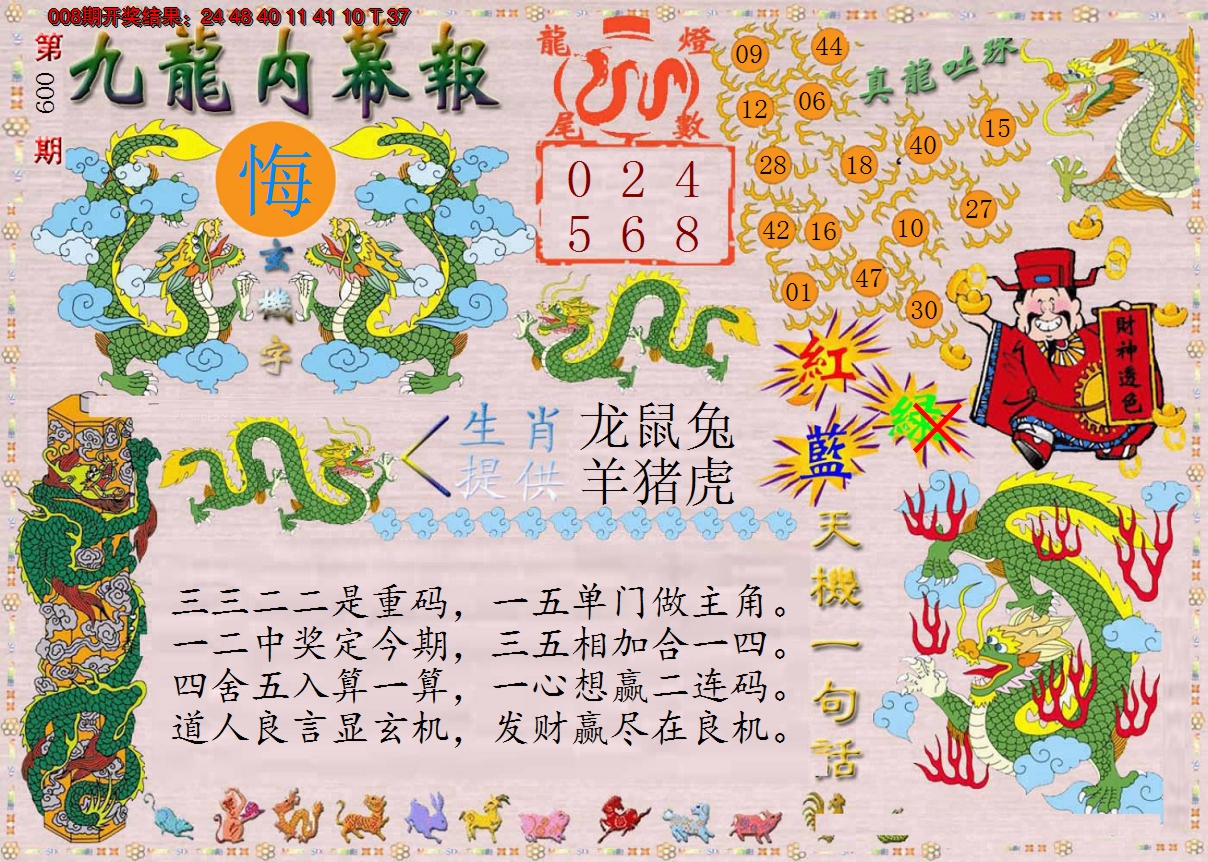 008期开奖结果：24 48 40 11 41 10 T 37
第
009
期
九龍内幕報
悔
玄
機
字
龍燈
尾數
0 2 4
5 6 8
真龍吐珠
09
44
12
06
15
40
28
18
27
42
16
10
47
01
30
財神透色
紅
綠
藍
生肖
提供
龙鼠兔
羊猪虎
天機一句话
三三二二是重码，一五单门做主角。
一二中奖定今期，三五相加合一四。
四舍五入算一算，一心想赢二连码。
道人良言显玄机，发财赢尽在良机。